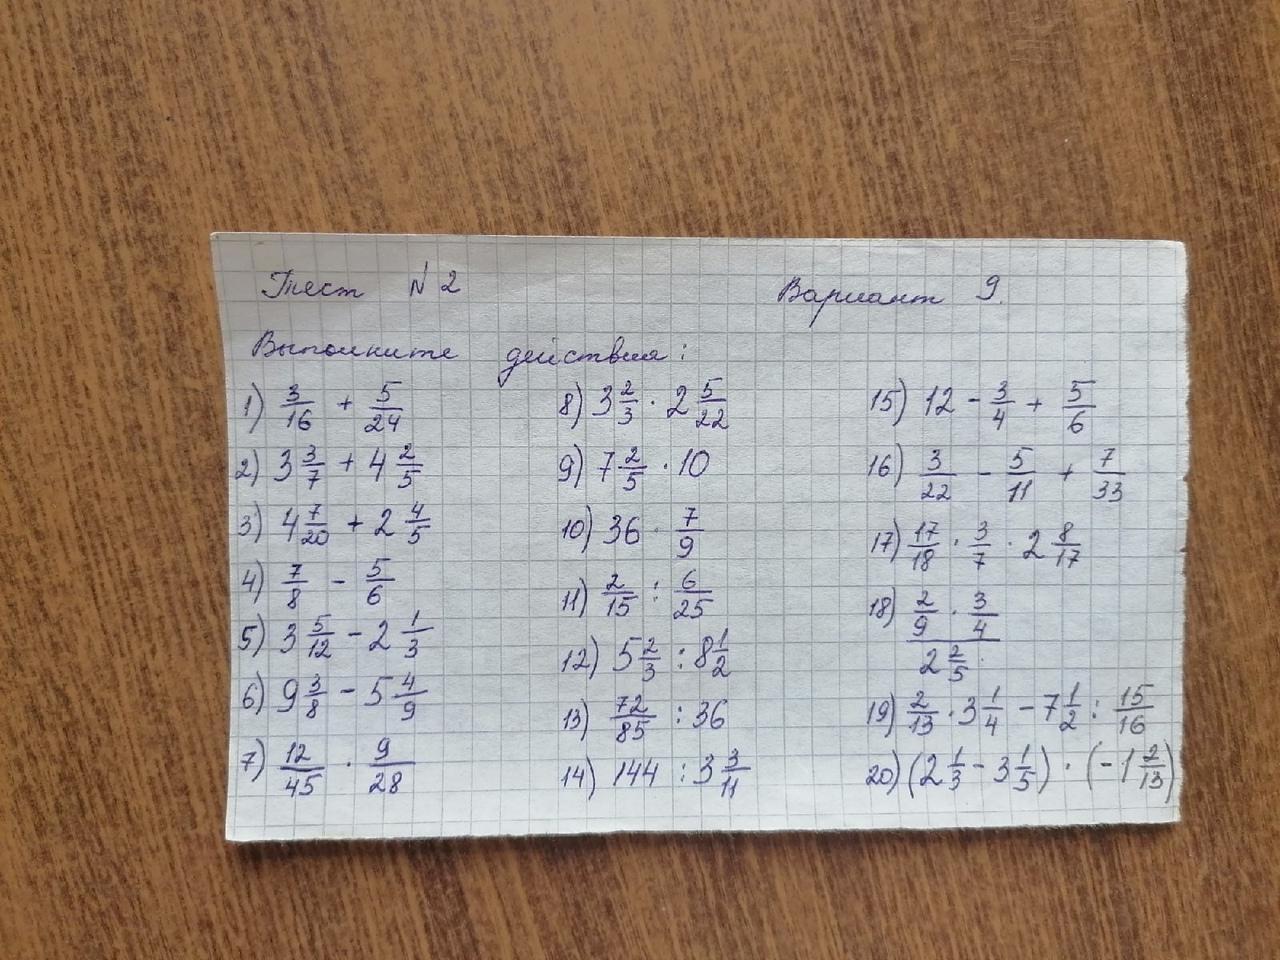 Тест №2
Вариант 9.
Выполните действия:
1) 3/16 + 5/24
2) 3 3/7 + 4 2/5
3) 4 7/20 + 2 4/5
4) 7/8 - 5/6
5) 3 5/12 - 2 1/3
6) 9 3/8 - 5 4/9
7) 12/45 · 9/28
8) 3 2/3 · 2 5/22
9) 7 2/5 · 10
10) 36 · 7/9
11) 2/15 : 6/25
12) 5 2/3 : 8 1/2
13) 72/85 : 36
14) 144 : 3 3/11
15) 12 - 3/4 + 5/6
16) 3/22 - 5/11 + 7/33
17) 17/18 · 3/7 · 2 8/17
18) (2/9 · 3/4)/(2 2/5)
19) 2/13 · 3 1/4 - 7 1/2 : 15/16
20) (2 1/3 - 3 1/5) · (-1 2/13)